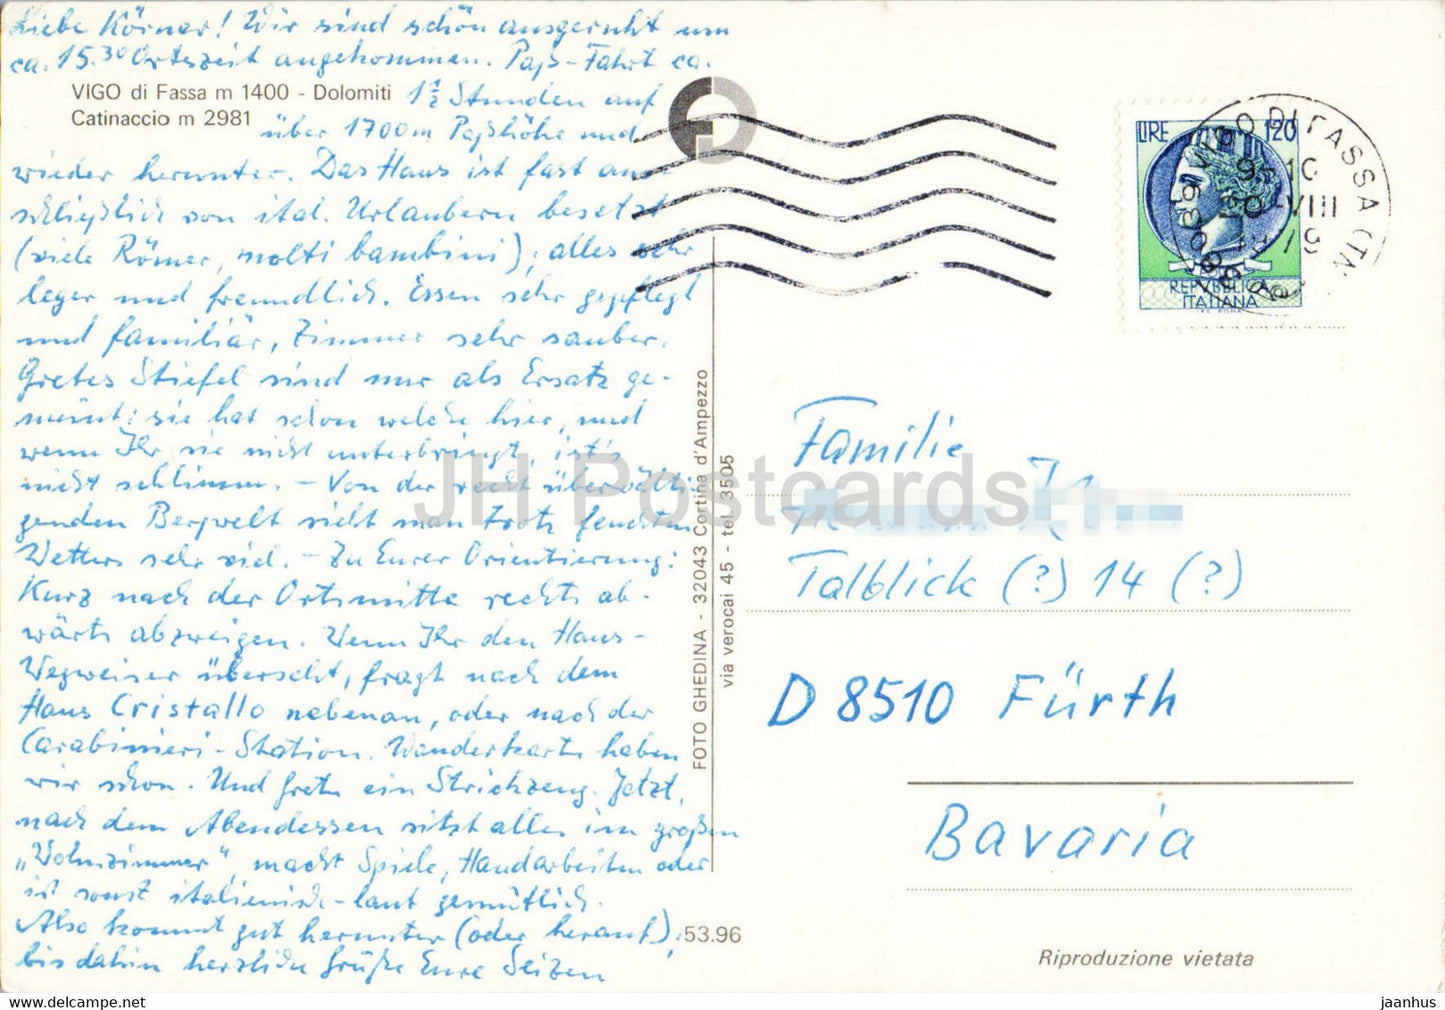 Liebe Körner! Wir sind schön ausgeruht um
ca. 15.30 Ortszeit angekommen. Paß-Fahrt ca.
VIGO di Fassa m 1400 - Dolomiti
Catinaccio m 2981
1 1/2 Stunden auf
über 1700m Paßhöhe und
wieder herunter. Das Haus ist fast aus-
schließlich von ital. Urlaubern besetzt
(viele Römer, molti bambini); alles sehr
leger und freundlich. Essen sehr gepflegt
und familiär, Zimmer sehr sauber.
Gretes Stiefel sind nur als Ersatz ge-
meint: sie hat schon welche hier, und
wenn Ihr sie nicht unterbringt, ist's
nicht schlimm. - Von der recht überwälti-
genden Bergwelt sieht man trotz feuchten
Wetters sehr viel. - Zu Eurer Orientierung:
Kurz nach der Ortsmitte rechts ab-
wärts abzweigen. Wenn Ihr den Haus-
Wegweiser überseht, fragt nach dem
Haus Cristallo nebenan, oder nach der
Carabinieri-Station. Wanderkarte haben
wir schon. Und Grete ein Strickzeug. Jetzt,
nach dem Abendessen sitzt alles im großen
„Wohnzimmer", macht Spiele, Handarbeiten oder
ist sonst italienisch-laut gemütlich.
Also kommt gut herunter (oder herauf);
bis dahin herzliche Grüße Eure Seizen
53.96
FOTO GHEDINA - 32043 Cortina d'Ampezzo
via verocai 45 - tel. 3505
LIRE 120
REPVBBLICA
ITALIANA
VIGO DI FASSA (TN)
Familie
Talblick (?) 14 (?)
D 8510 Fürth
Bavaria
Riproduzione vietata
JH Postcards
jaanhus
hippostcard.com